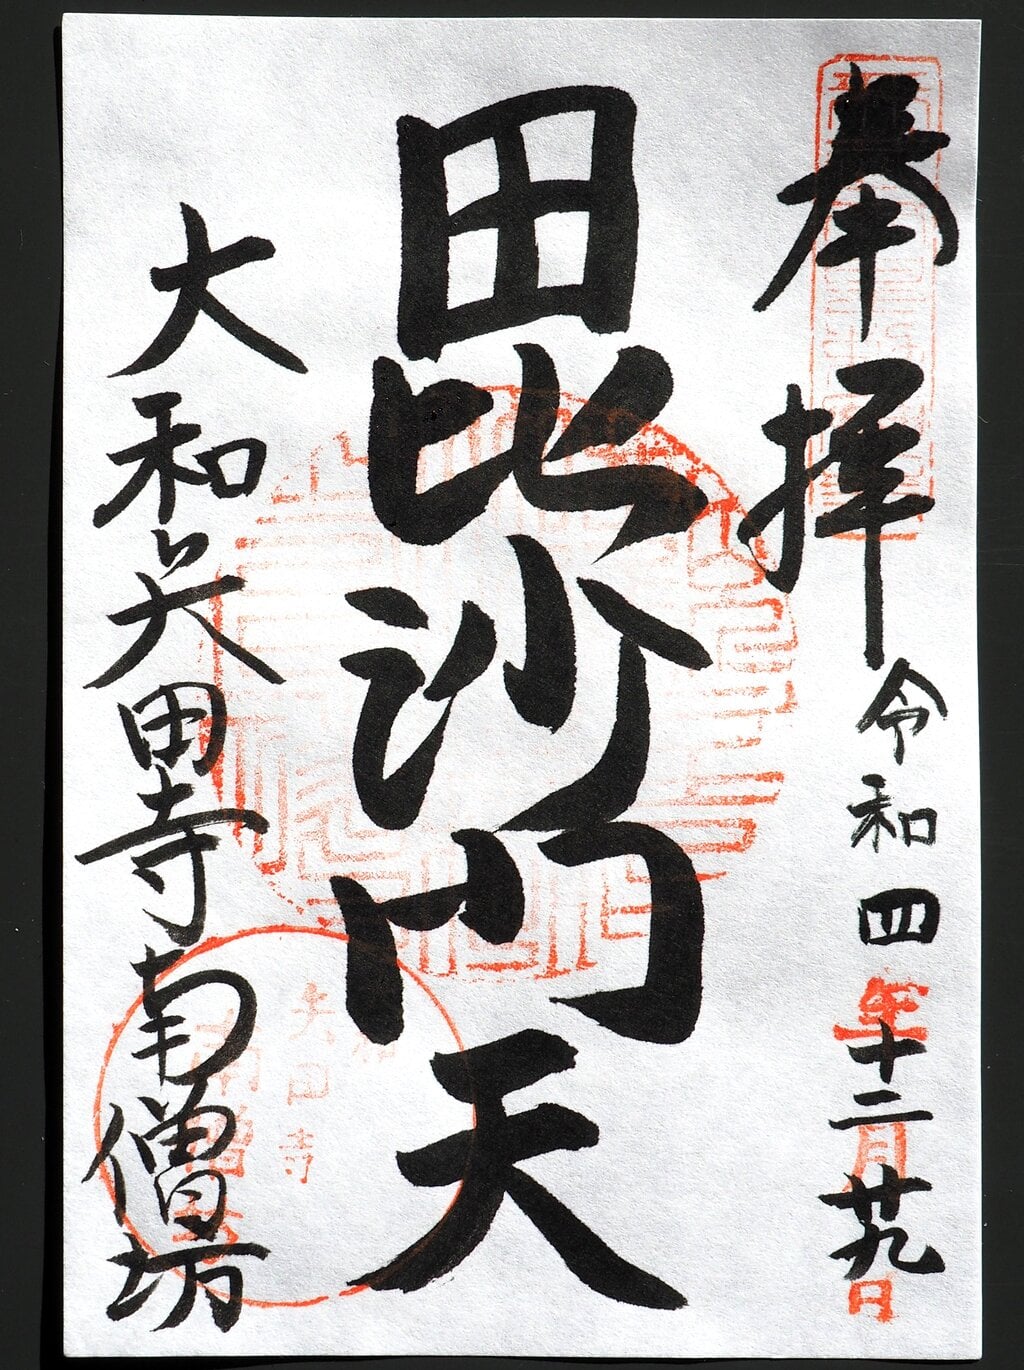 奉拝 令和四年十二月廿九日
毘沙門天
大和矢田寺南僧坊
矢田寺
南僧坊